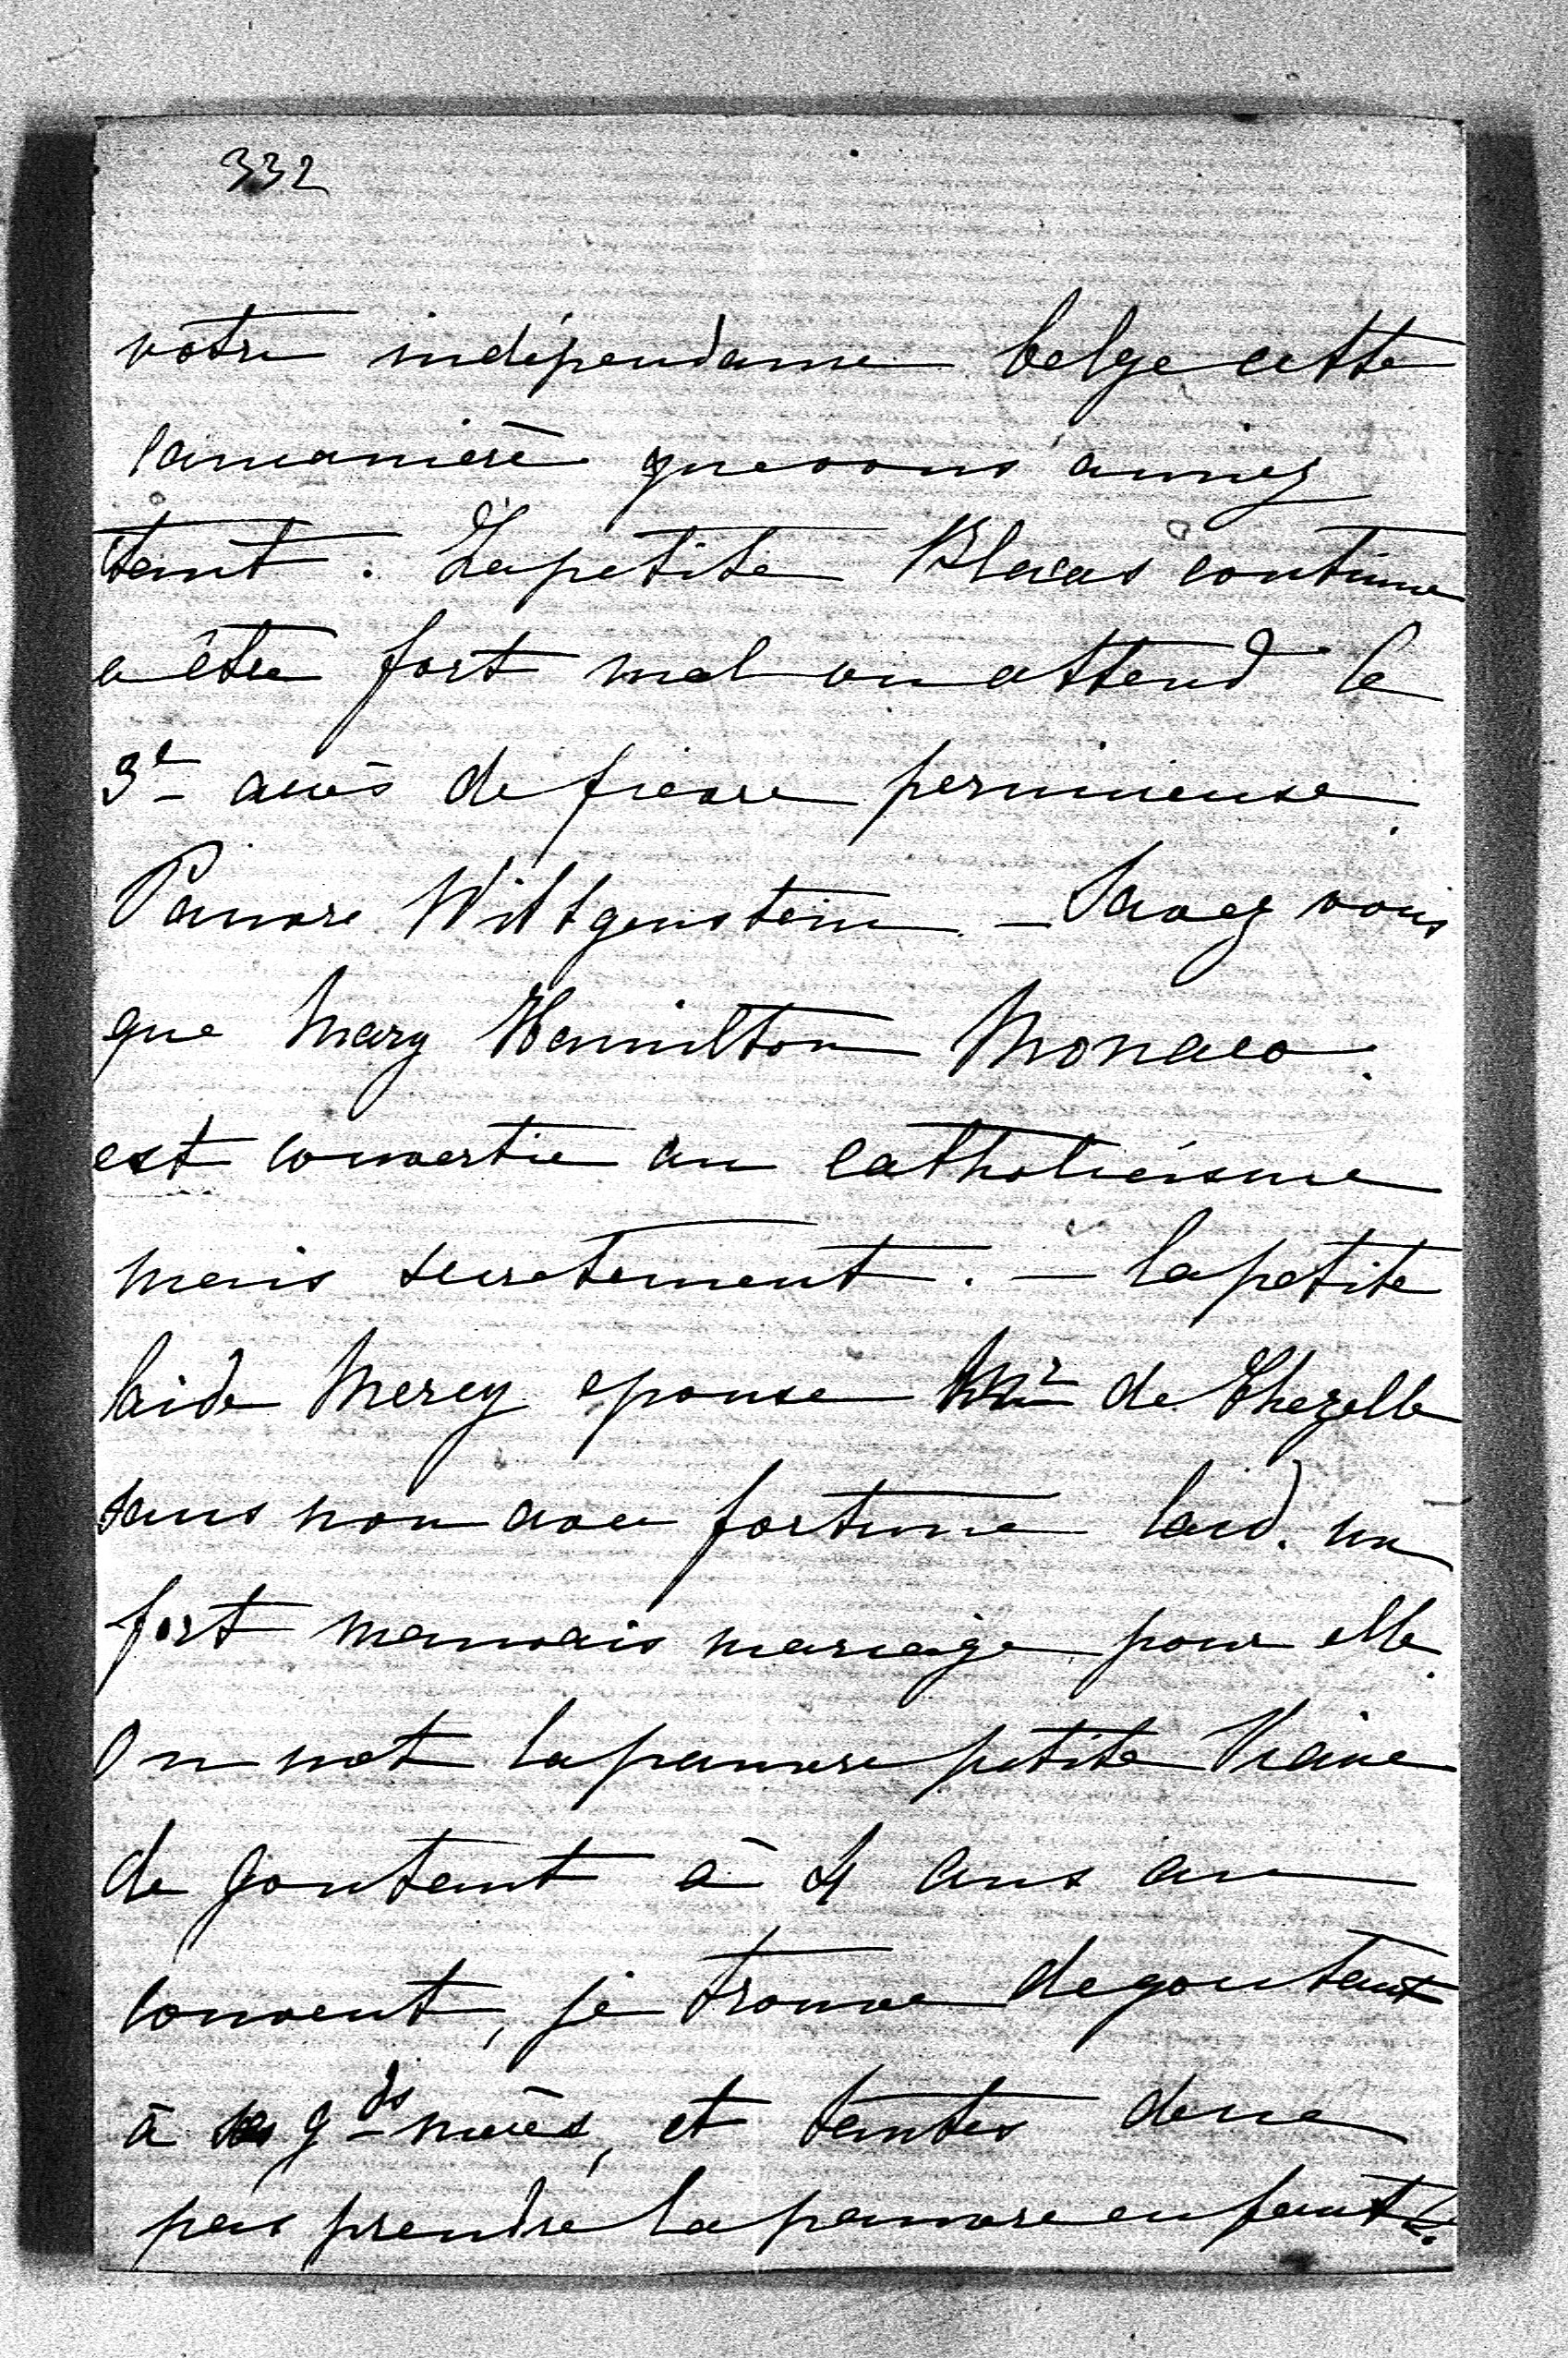 332
votre indépendance belge cette
 que vous aimiez
tant. La petite Blacas continue
a être fort mal on attend le
3e accès de fievre pernicieuse.
Pauvre Wittgenstein. – Savez vous
que Mary Hamilton Monaco.
est convertie au catholicisme
mais secretement. – la petite
laide Mercy epouse Mr de Thezelle
sans nom avec fortune laid. un
fort mauvais mariage pour elle.
On met la pauvre petite
de Gontaut à 4 ans au
couvent, je trouve degoutant
à ses gds mères, et tantes de ne
pas prendre la pauvre enfant.